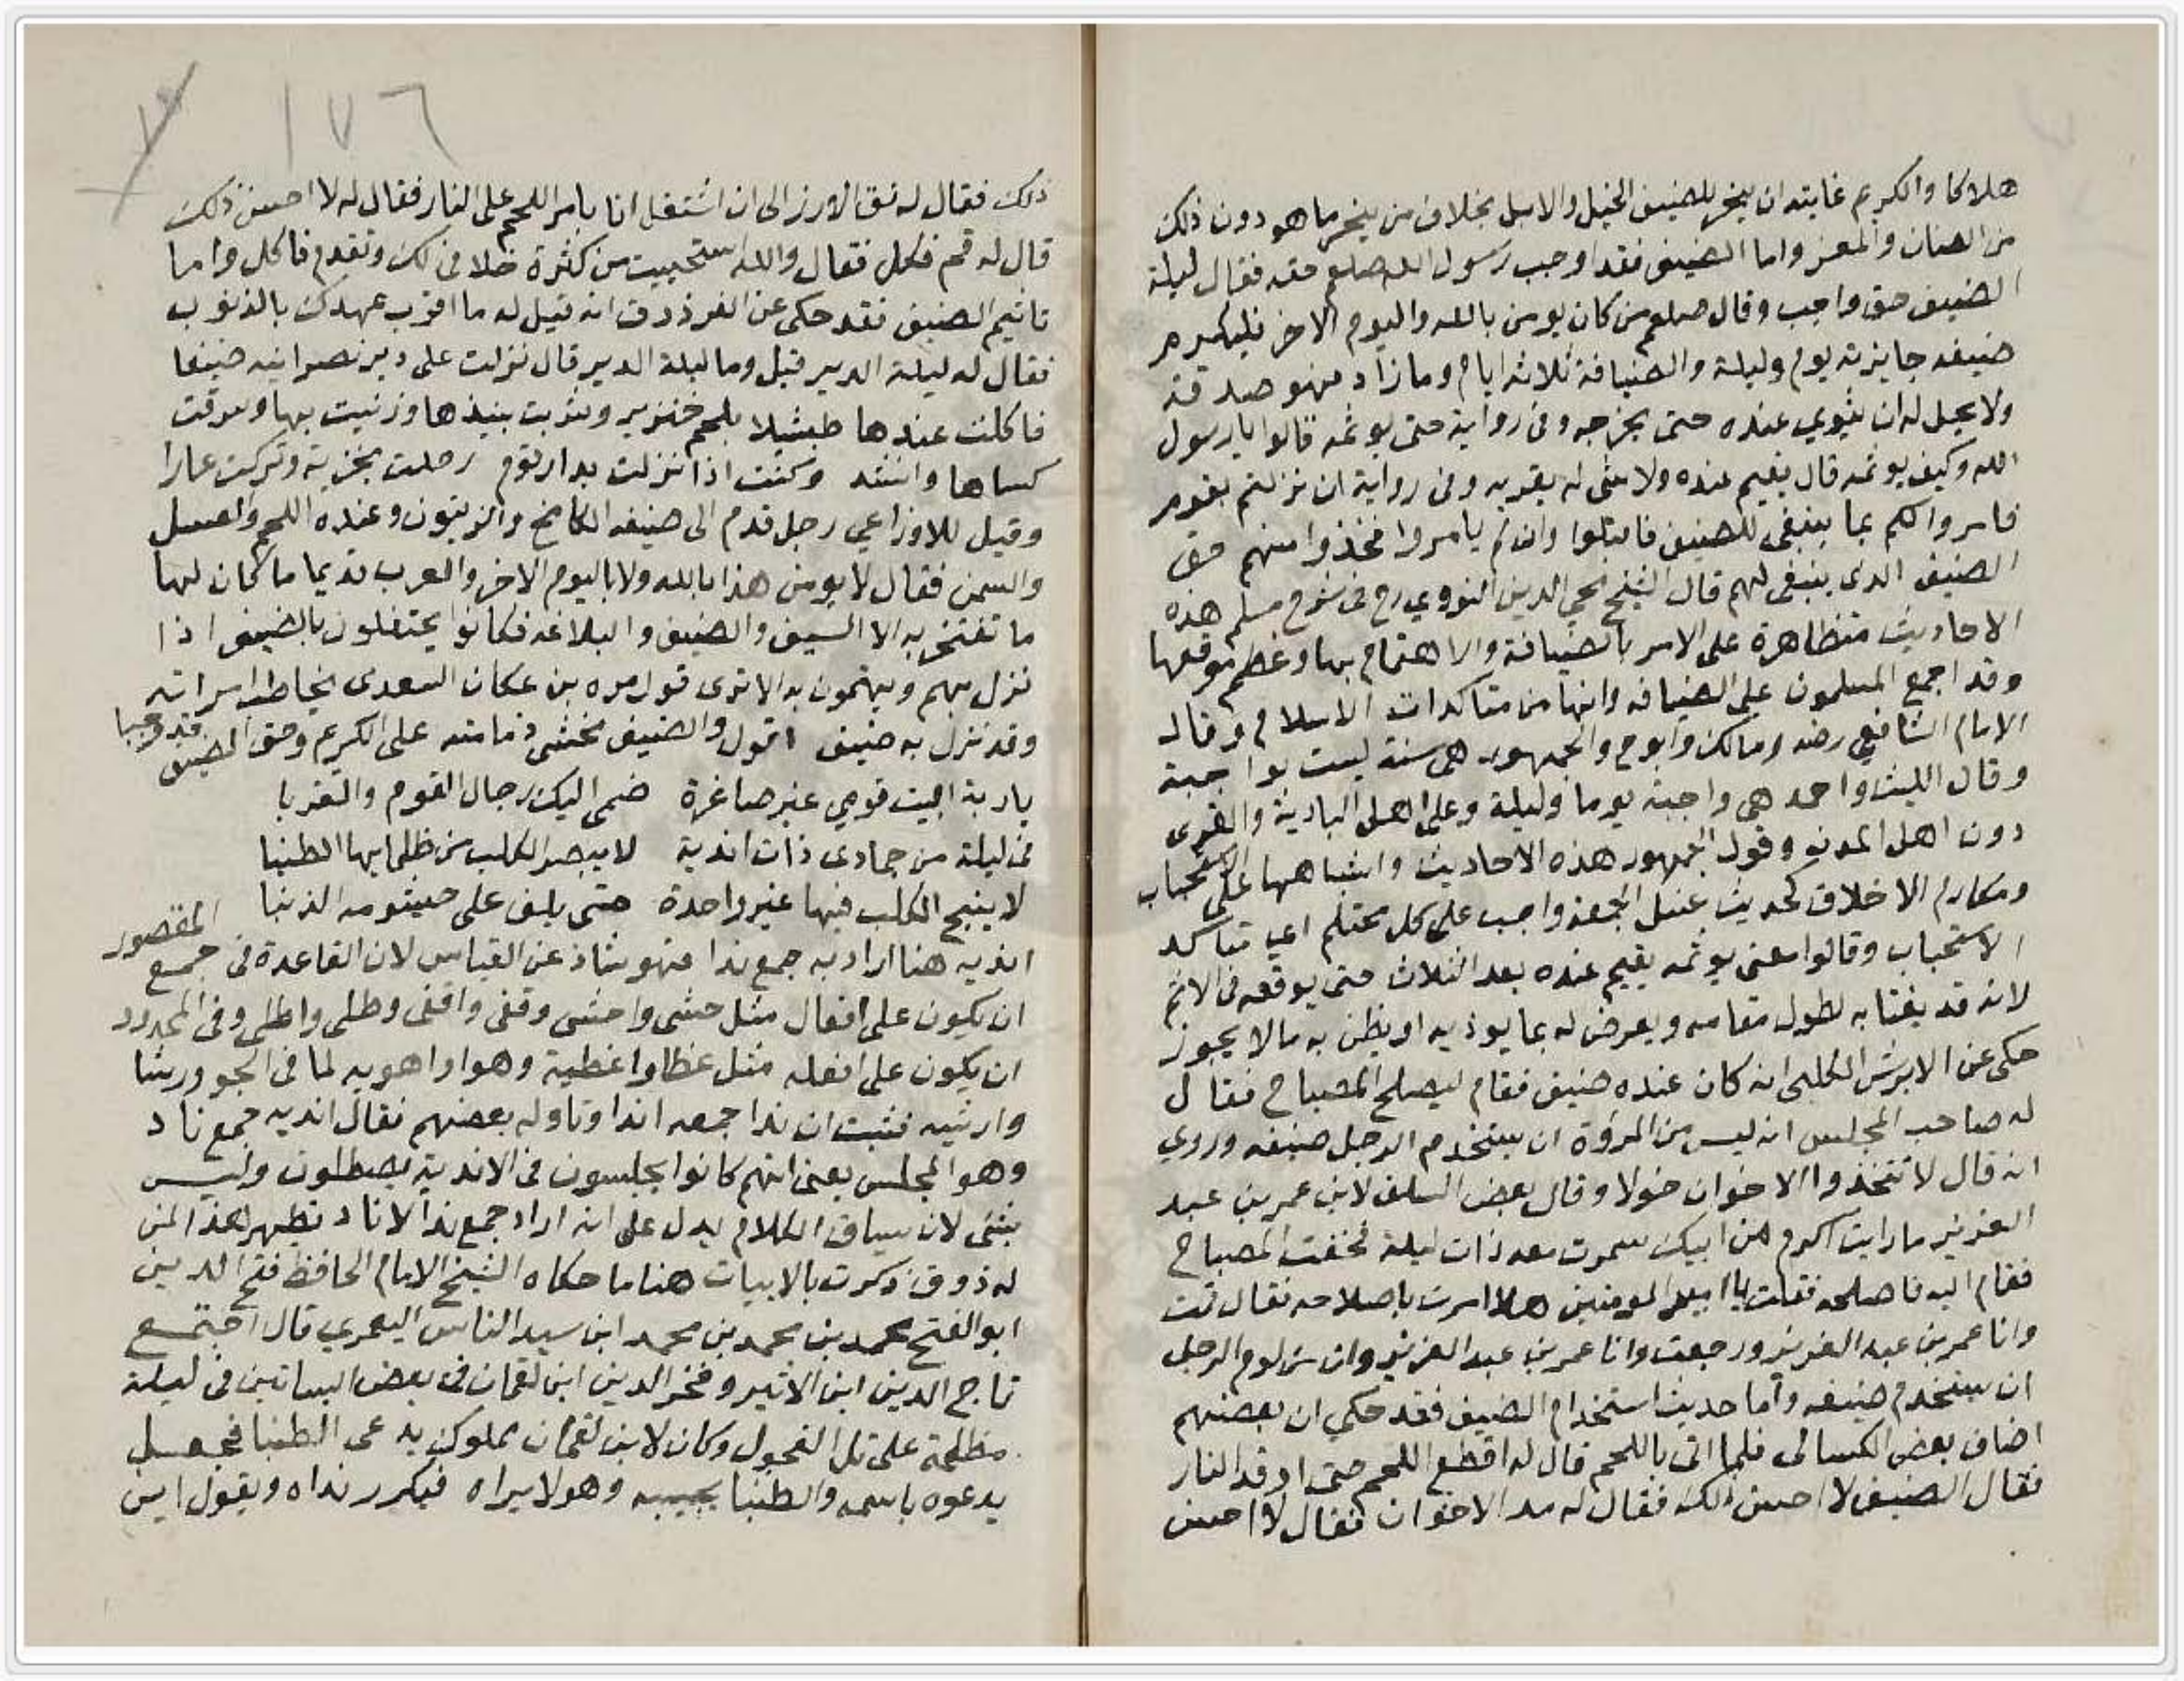 هلاكا والكريم غايته ان ينحر للضيف الخيل والابل بخلاف من ينحر ما هو دون ذلك
من الضان والمعز واما الضيف فقد اوجب رسول الله صلعم حقه فقال ليلة
الضيف حق واجب وقال صلعم من كان يومن بالله واليوم الاخر فليكرم
ضيفه جايزته يوم وليلة والضيافة ثلاثة ايام وما زاد فهو صدقة
ولا يحل له ان يثوي عنده حتى يخرجه وفي رواية حتى يوثمه قالوا يا رسول
الله وكيف يوثمه قال يقيم عنده ولا شي له يقريه وفي رواية ان نزلتم بقوم
فامروا لكم بما ينبغي للضيف فاقبلوا وان لم يامروا فخذوا منهم حق
الضيف الذي ينبغي لهم قال الشيخ محي الدين النووي رح في شرح مسلم هذه
الاحاديث متظاهرة على الامر بالضيافة والاهتمام بها وعظم موقعها
وقد اجمع المسلمون على الضيافه وانها من متاكدات الاسلام وقال
الامام الشافعي رضه ومالك وابوح والجمهور هي سنة ليست بواجبة
وقال الليث واحمد هي واجبة يوما وليلة وعلى اهل البادية والقرى
دون اهل المدن وقول الجمهور هذه الاحاديث واشباهها على الاستحباب
ومكارم الاخلاق كحديث غسل الجمعة واجب على كل محتلم اي متاكد
الاستحباب وقالوا معنى يوثمه يقيم عنده بعد الثلاث حتى يوقعه في الاثم
لانه قد يغتابه لطول مقامه ويعرض له بما يوذيه او يظن به مالا يجوز
حكى عن الابرش الكلبي انه كان عنده ضيف فقام ليصلح المصباح فقال
له صاحب المجلس انه ليس من المرؤة ان يستخدم الرجل ضيفه وروي
انه قال لا تتخذوا الاخوان خولا وقال بعض السلف لابن عمر بن عبد
العزيز ما رايت اكرم من ابيك سمرت معه ذات ليلة فخفت المصباح
فقام اليه فاصلحه فقلت يا امير المومنين هلا امرت باصلاحه فقال قمت
وانا عمر بن عبد العزيز ورجعت وانا عمر بن عبد العزيز وان من لوم الرجل
ان يستخدم ضيفه واما حديث استخدام الضيف فقد حكي ان بعضهم
اضاف بعض الكسالى فلما اتى باللحم قال له اقطع اللحم حتى اوقد النار
فقال الضيف لا احسن ذلك فقال له مد الاخوان فقال لا احسن
١٧٦
ذلك فقال له نق الارز الى ان اشتغل انا بامر اللحم على النار فقال له لا احسن ذلك
قال له قم فكل فقال والله استحييت من كثرة خلافي لك وتقدم فاكل واما
تاثيم الضيف فقد حكى عن الفرزدق انه قيل له ما اقرب عهدك بالذنوب
فقال له ليلة الدير قيل وما ليلة الدير قال نزلت على دير نصرانيه ضيفا
فاكلت عندها طبشيلا بلحم خنزير وشربت نبيذها وزنيت بها وسرقت
كساها وانشد وكنت اذا نزلت بدار قوم رحلت بخزية وتركت عارا
وقيل للاوزاعي رجل قدم الى ضيفه الكامخ والزيتون وعنده اللحم والعسل
والسمن فقال لا يومن هذا بالله ولا باليوم الاخر والعرب قديما ما كان لها
ما تفتخر به الا السيف والضيف والبلاغه فكانوا يحتفلون بالضيف اذا
نزل بهم ويهتمون به الا ترى قول مره بن محكان السعدي يخاطب امراته
وقد نزل به ضيف اقول والضيف مخشي ذمامته على الكريم وحق الضيف قد وجبا
يا ربة البيت قومي غير صاغرة ضمى اليك رجال القوم والقربا
في ليلة من جمادى ذات اندية لا يبصر الكلب من ظلمايها الطنبا
لا ينبح الكلب فيها غير واحدة حتى يلف على خيشومه الذنبا
اندية هنا اراد به جمع ندا فهو شاذ عن القياس لان القاعدة في جمع المقصور
ان يكون على افعال مثل حشى واحشى وقفى واقفى وطلى واطلى وفي الممدود
ان يكون على افعله مثل غطا واغطية وهوا واهويه لما في الجو ورشا
وارشيه فثبت ان ندا جمعه اندا وتاوله بعضهم فقال اندية جمع ناد
وهو المجلس يعني انهم كانوا يجلسون في الاندية يصطلون وليس
بشي لان سياق الكلام يدل على انه اراد جمع ندا لا ناد تطهر لهذا لمن
له ذوق ذكرت بالابيات هنا ما حكاه الشيخ الامام الحافظ فتح الدين
ابو الفتح محمد بن محمد بن محمد ابن سيد الناس اليعمري قال اجتمع
تاج الدين ابن الاثير وفخر الدين ابن لقمان في بعض البساتين في ليلة
مظلمة على تل العجول وكان لابن لقمان مملوك يدعى الطنبا فجعل
يدعوه باسمه والطنبا يجيبه وهو لا يراه فيكرر نداه ويقول اين